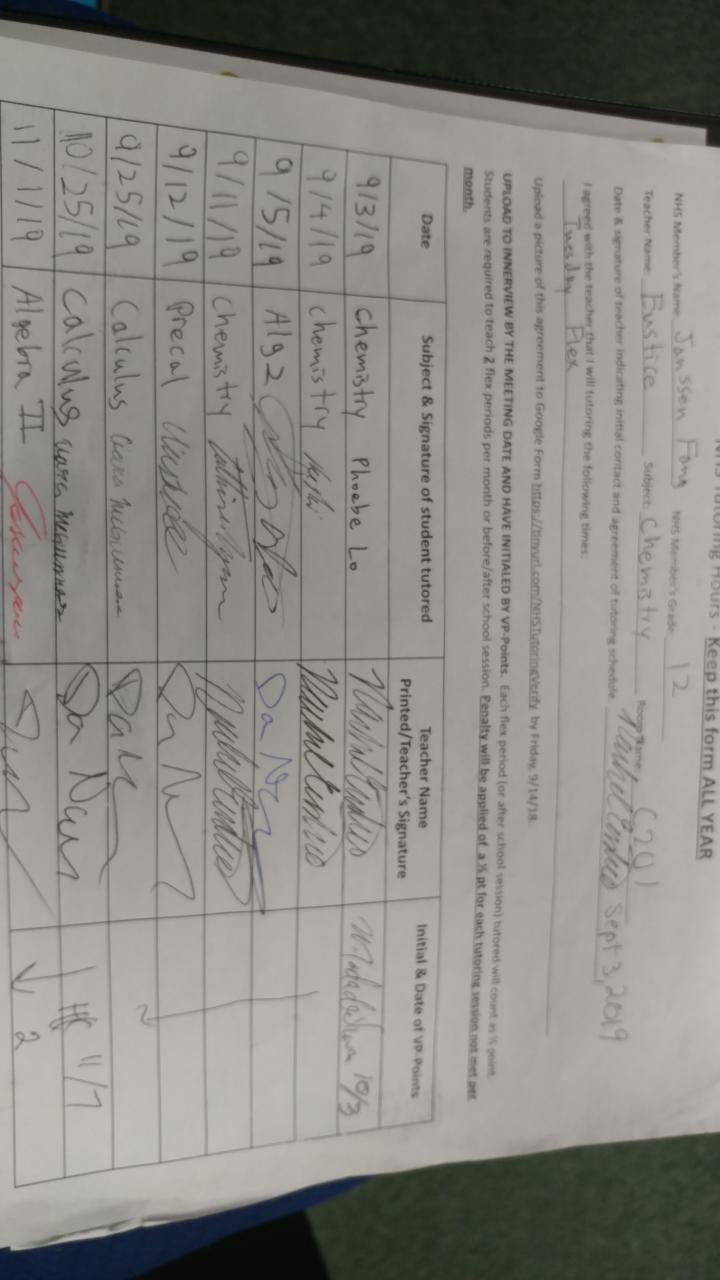 NHS Tutoring Hours - Keep this form ALL YEAR
NHS Member's Name: Janssen Fong NHS Member's Grade: 12
Teacher Name: Eustice Subject: Chemistry Room Name: C201
Date & signature of teacher indicating initial contact and agreement of tutoring schedule: Sept 3, 2019
I agreed with the teacher that I will tutoring the following times:
Tuesday Flex
Upload a picture of this agreement to Google Form https://tinyurl.com/NHSTutoringVerify by Friday, 9/14/18.
UPLOAD TO INNERVIEW BY THE MEETING DATE AND HAVE INITIALED BY VP-Points. Each flex period (or after school session) tutored will count as ½ point.
Students are required to teach 2 flex periods per month or before/after school session. Penalty will be applied of a ½ pt for each tutoring session not met per
month.
Date Subject & Signature of student tutored Teacher Name Printed/Teacher's Signature Initial & Date of VP-Points
9/3/19 Chemistry Phoebe Lo 10/3
9/4/19 Chemistry
9/5/19 Alg 2
9/11/19 Chemistry
9/12/19 Precal
9/25/19 Calculus
10/25/19 Calculus 11/7
11/1/19 Algebra II 2